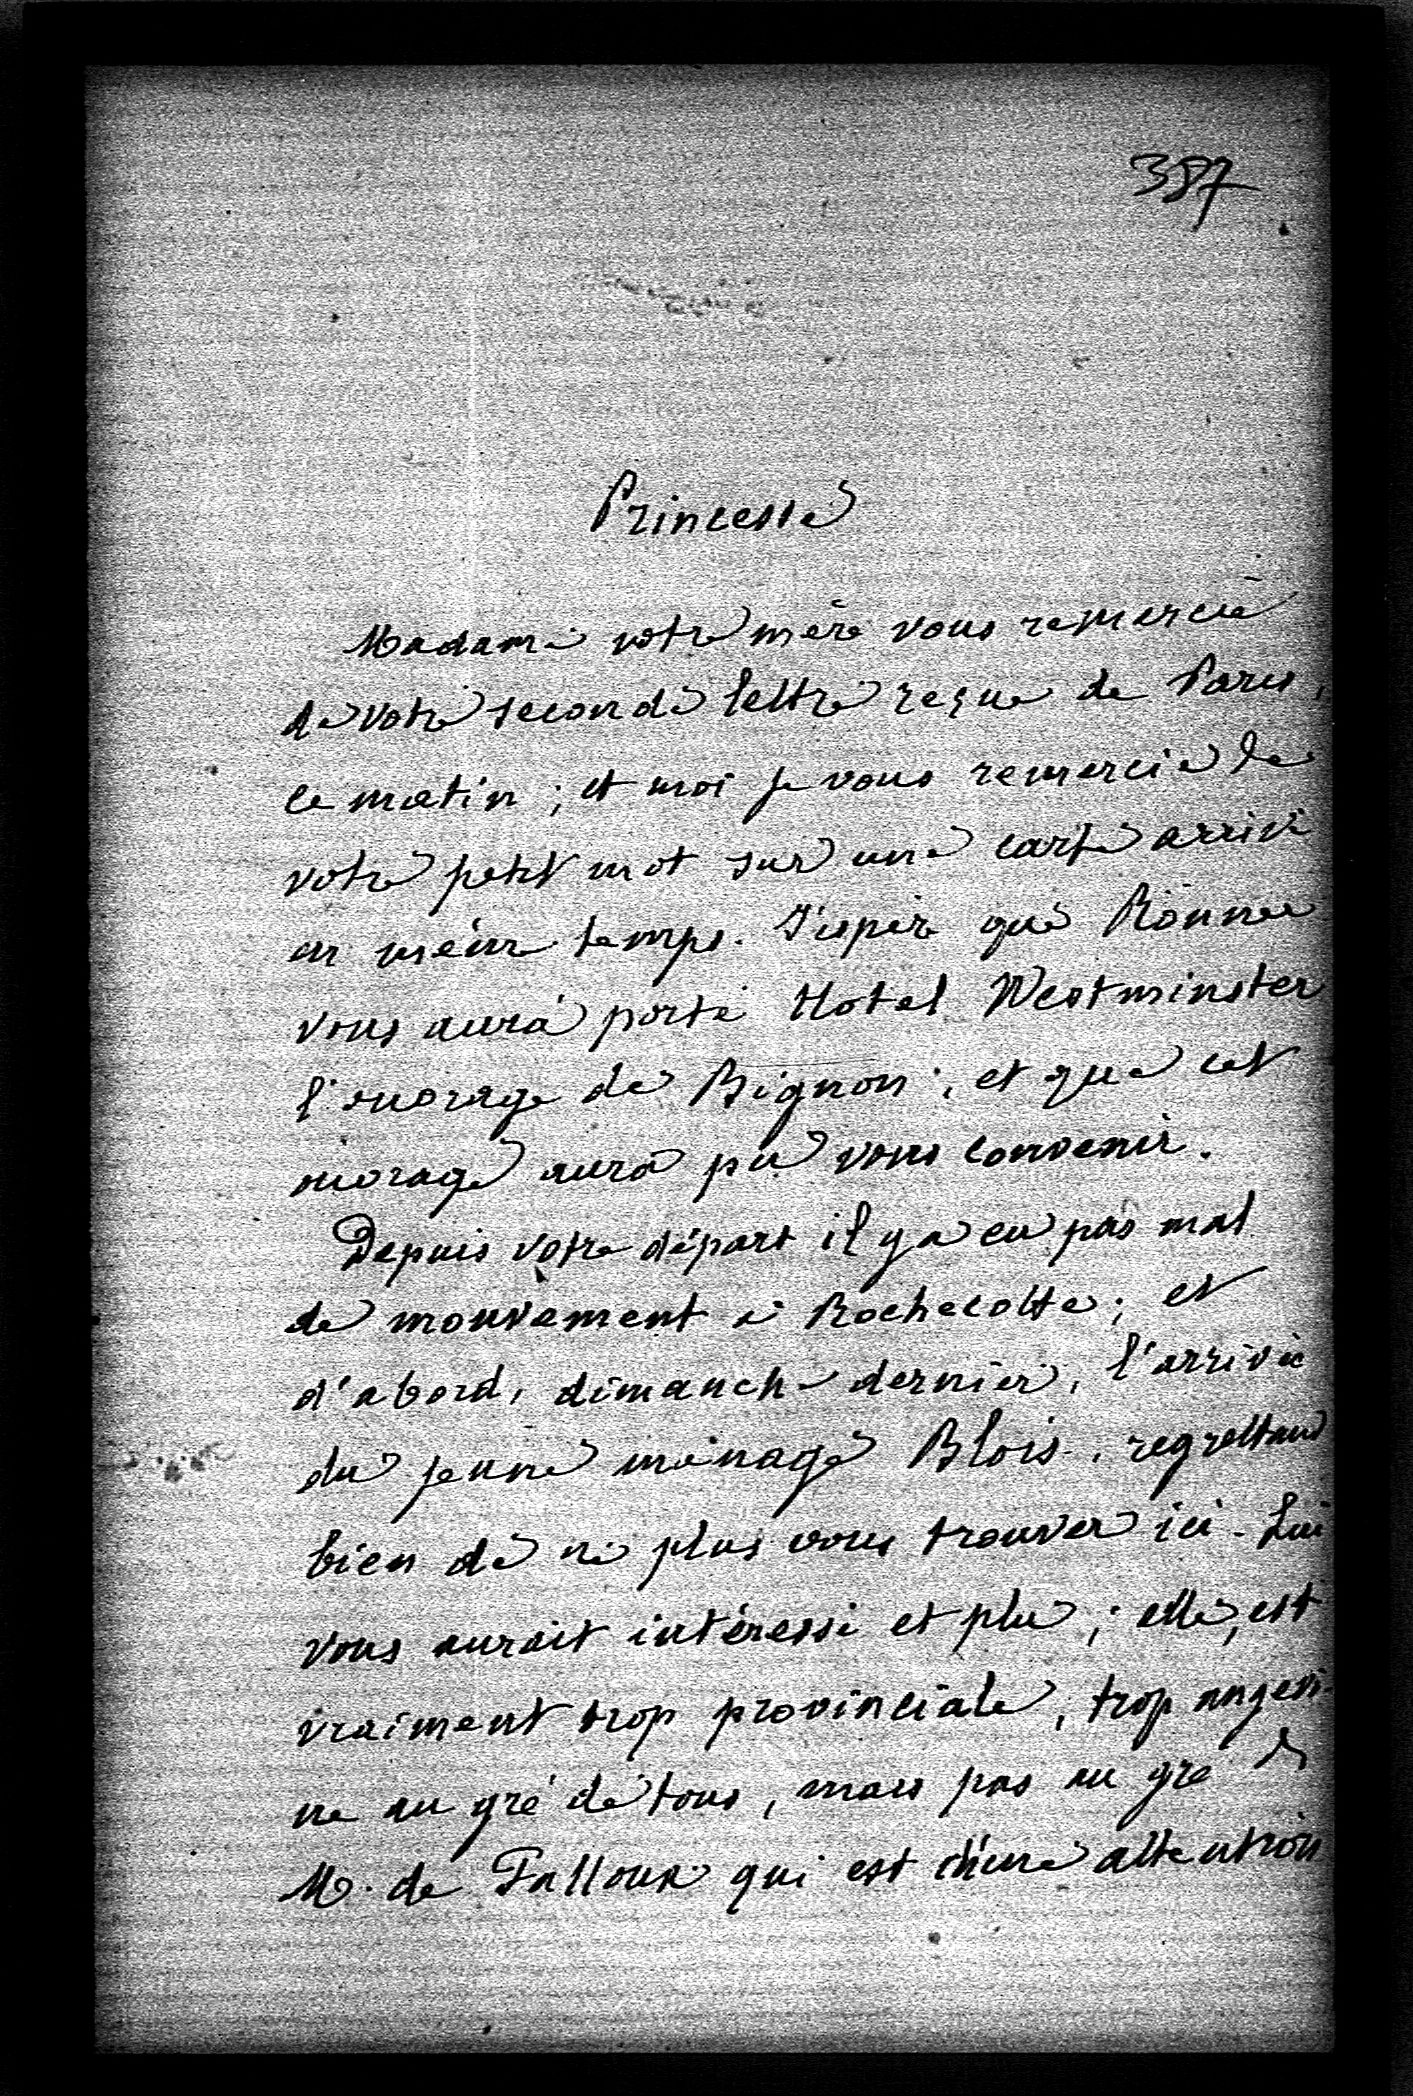 387
Princesse
Madame votre mère vous remercie
de votre seconde lettre reçue de Paris,
ce matin ; et moi je vous remercie de
votre petit mot sur une carte arrivé
en même temps. J'espère que
vous aura porté Hotel Westminster
l'ouvrage de Bignon ; et que cet
ouvrage aura pu vous convenir.
Depuis votre départ il y a eu pas mal
de mouvement à Rochecotte ; et
d'abord, dimanche dernier, l'arrivée
du jeune ménage Blois, regrettant
bien de ne plus vous trouver ici. Lui
vous aurait intéressé et plu ; elle, est
vraiment trop provinciale, trop angevi-
ne au gré de tous, mais pas au gré de
M. de Falloux qui est d'une attention